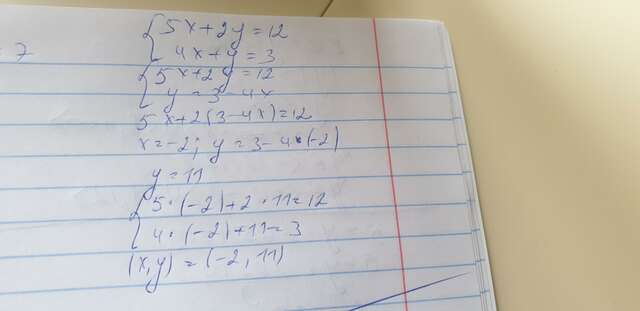 {5x+2y=12
- 7
4x+y=3
{5x+2y=12
y=3-4x
5x+2(3-4x)=12
x=-2; y=3-4·(-2)
y=11
{5·(-2)+2·11=12
4·(-2)+11=3
(x,y)=(-2,11)